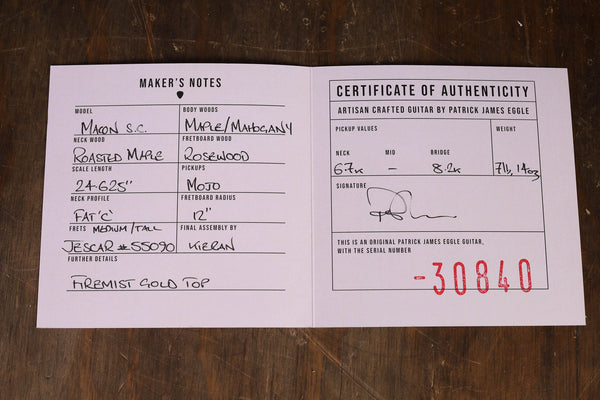 MAKER'S NOTES
MODEL
MACON S.C.
BODY WOODS
MAPLE/MAHOGANY
NECK WOOD
ROASTED MAPLE
FRETBOARD WOOD
ROSEWOOD
SCALE LENGTH
24.625"
PICKUPS
MOJO
NECK PROFILE
FAT 'C'
FRETBOARD RADIUS
12"
FRETS MEDIUM/TALL
JESCAR #55090
FINAL ASSEMBLY BY
KIERAN
FURTHER DETAILS
FIREMIST GOLD TOP
CERTIFICATE OF AUTHENTICITY
ARTISAN CRAFTED GUITAR BY PATRICK JAMES EGGLE
PICKUP VALUES
NECK MID BRIDGE
6.7K – 8.2K
WEIGHT
7lb, 14oz
SIGNATURE
THIS IS AN ORIGINAL PATRICK JAMES EGGLE GUITAR,
WITH THE SERIAL NUMBER
-30840